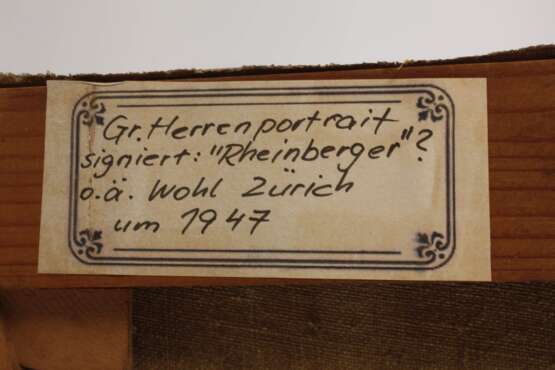 Gr. Herrenportrait
signiert: "Rheinberger"?
o.ä. Wohl Zürich
um 1947